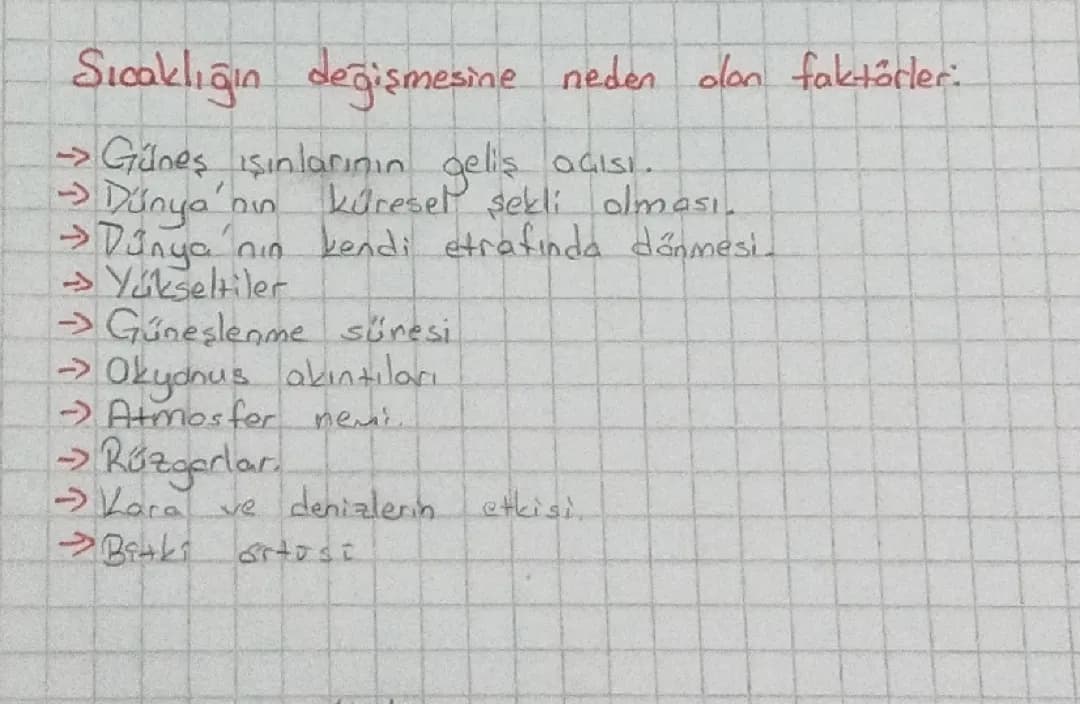 Sıcaklığın değişmesine neden olan faktörler:
→ Güneş ışınlarının geliş açısı.
→ Dünya'nın küresel şekli olması.
→ Dünya'nın kendi etrafında dönmesi.
→ Yükseltiler
→ Güneşlenme süresi
→ Okyanus akıntıları
→ Atmosfer nemi.
→ Rüzgarlar.
→ Kara ve denizlerin etkisi.
→ Bitki örtüsü